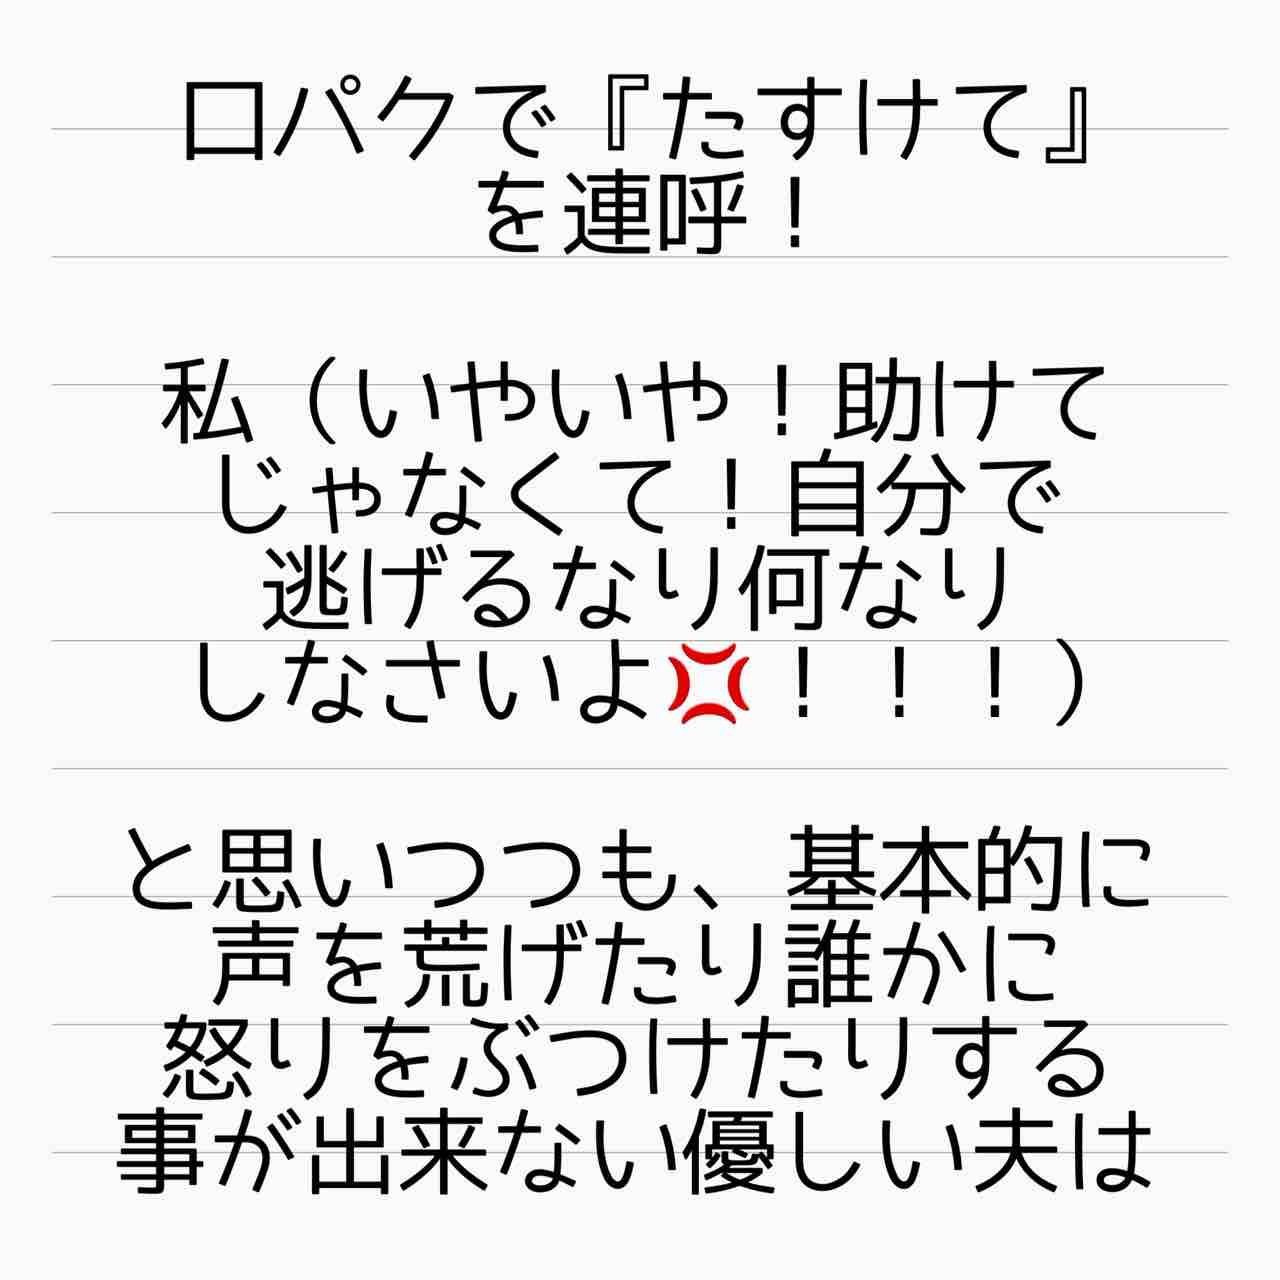 口パクで『たすけて』
を連呼！
私（いやいや！助けて
じゃなくて！自分で
逃げるなり何なり
しなさいよ💢！！！）
と思いつつも、基本的に
声を荒げたり誰かに
怒りをぶつけたりする
事が出来ない優しい夫は